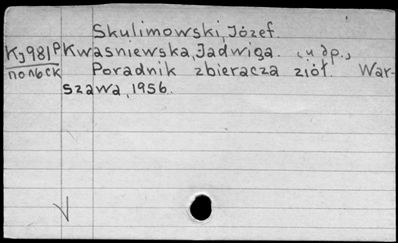 Skulimowski, Józef.
KJ981P Kwaśniewska, Jadwiga. и др.,
польск Poradnik zbieracza ziół. War-
szawa, 1956.